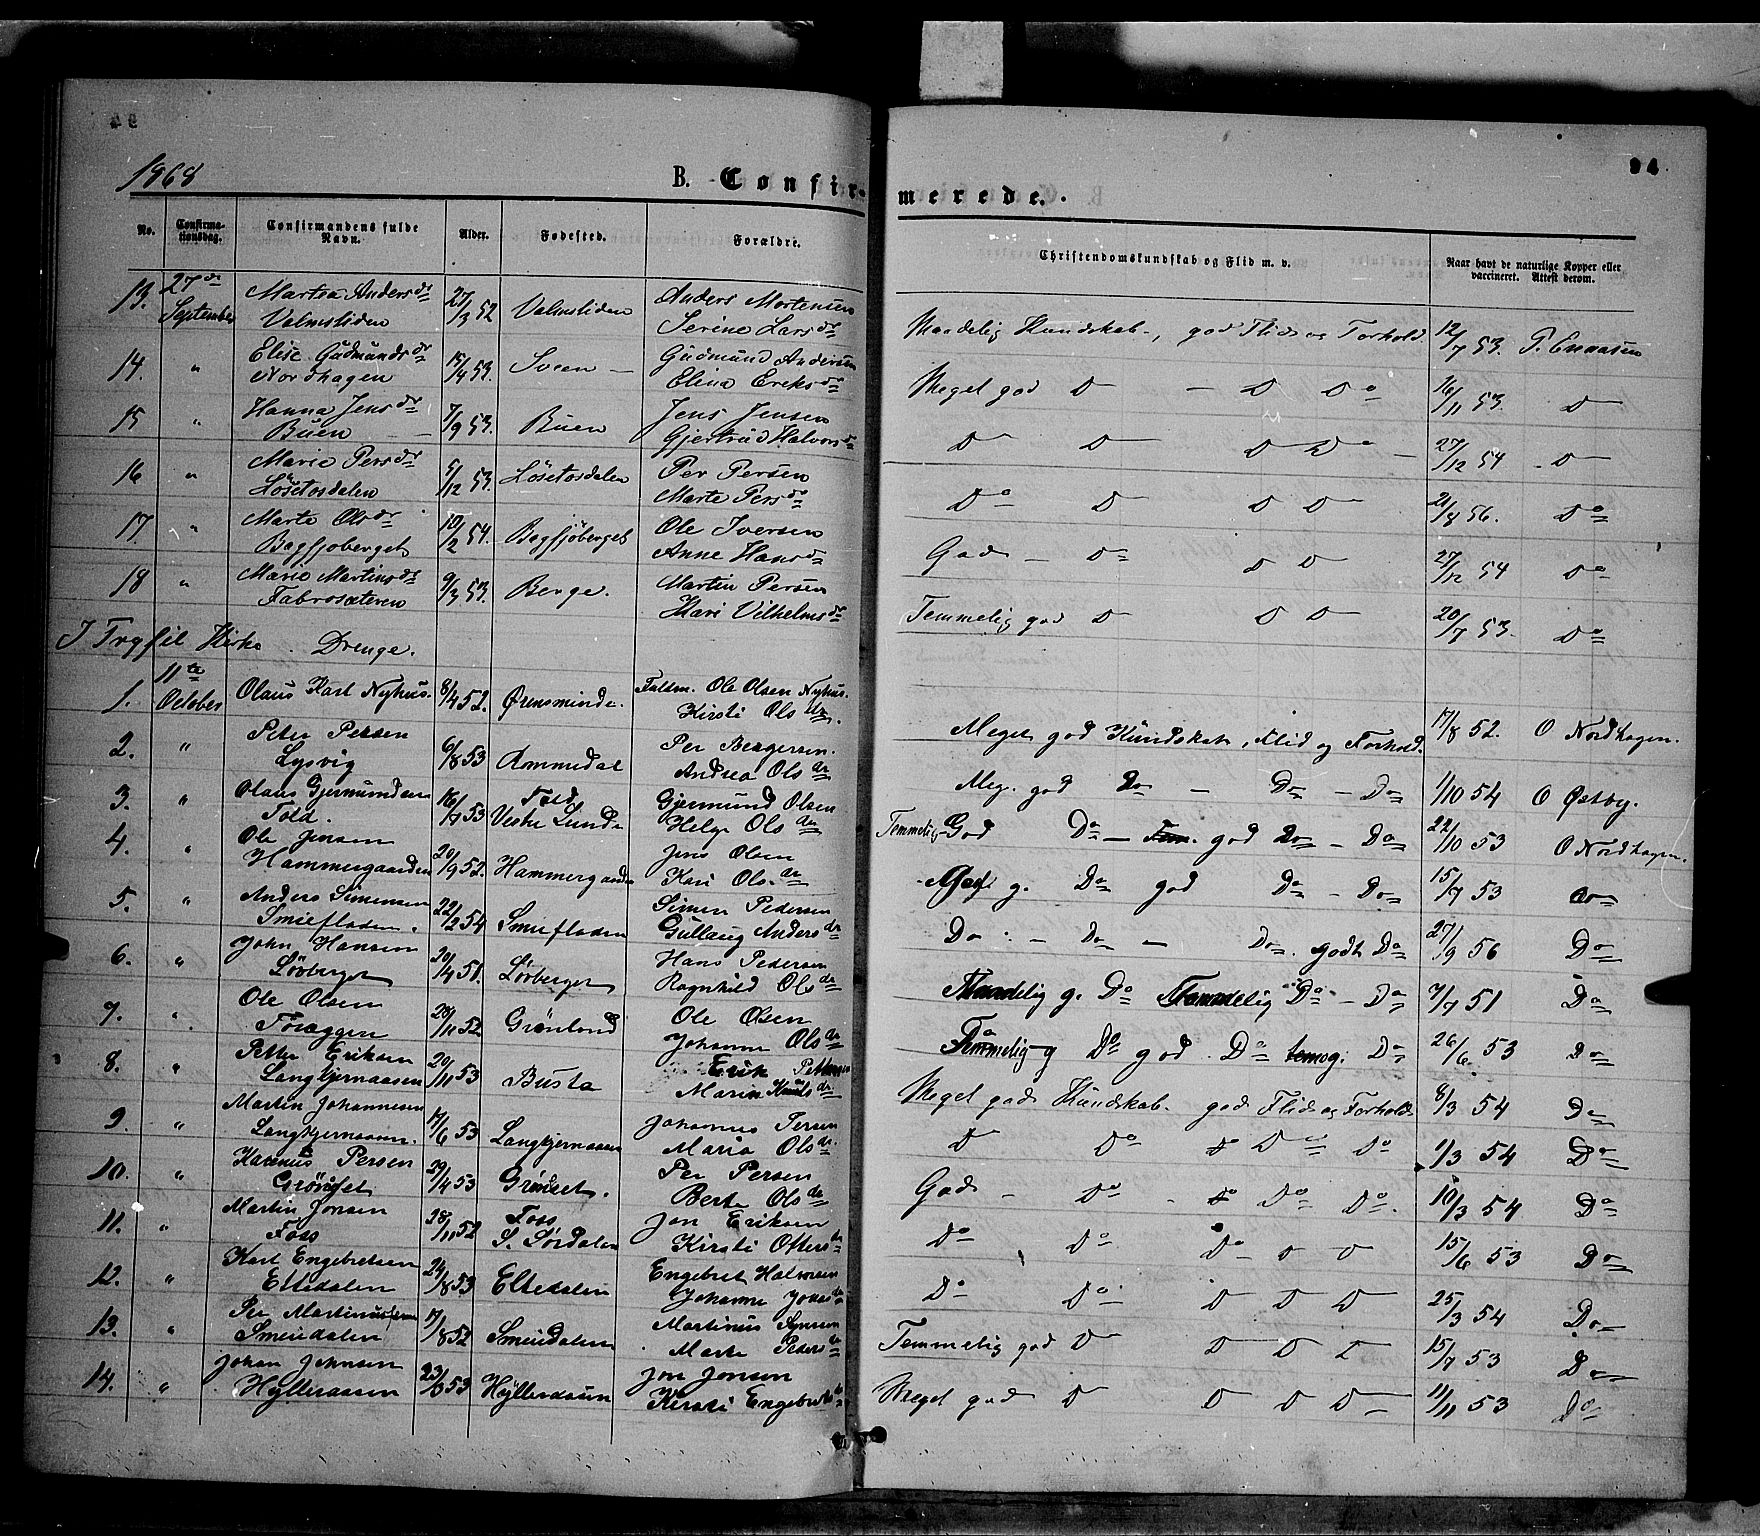 1868
B. Confirmerede.
94
No.
Confirmationsdag.
Confirmandens fulde Navn.
Alder.
Fødested.
Forældre.
Christendomskundskab og Flid m. v.
Naar havt de naturlige Kopper eller vaccineret. Attest derom.
13. 27de September Martea Andersdr Valmsliden 27/3 52 Valmsliden Anders Mortensen Serine Larsdr Maadelig Kundskab, god Flid og Forhold 12/7 53.
14. " Elise Gudmundsdr Nordhagen 15/4 53. Sveen — Gudmund Andersen Elina Eriksdr Meget god D — D Do 16/11 53. D
15 " Hanna Jensdr Buen 7/9 53. Buen Jens Jensen Gjertrud Halvorsdr D D D Do 27/12 54 D
16 " Marie Persdr Løsetosdalen 5/12 53. Løsetosdalen Per Persen Marte Persdr Do D D D 21/8 56. Do
17. " Marte Olsdr Bogfjoberget 10/2 54. Bogfjoberget Ole Iversen Anne Hansdr God — Do D D 27/12 54 Do
18 " Marie Martinsdr Fabrosæteren 9/3 53. Berge. Martin Persen Kari Vilhelmsdr Temmelig god D D D 20/7 53. Do
I Trysil Kirke. Drenge.
1. 11te October Olaus Karl Nyhus. 8/4 52. Ørensminde. Faltsm. Ole Olsen Nyhus. Kirsti Olsdr. Meget god Kundskab, Flid og Forhold. 17/8 52. O Nordhagen.
2. " Peter Persen Lysvig 6/8 53 Per Bergersen. Andrea Olsdr Meg. god Do — Do — Do 1/10 54 O Østby.
3. " Olaus Gjermundsen Told. 16/7 53 Told Vestre Lunde Gjermund Olsen Helge Olsdr Temmelig God Do — god Do — Do 22/10 53 O Nordhagen.
4. " Ole Jensen Hammergaarden 20/9 52. Hammergaarden Jens Olsen Kari Olsdr g. Do god Do — Do 15/7 53 Do
5. " Anders Simensen Smiefloden. 22/2 54 Smiefloden Simen Pedersen Gullaug Andersdr Do — Do — Do. godt Do 27/9 56 Do
6. " John Hansen Lövberget 20/4 51. Lövberget Hans Pedersen Ragnhild Olsdr Maadelig g. Do Do — Do 7/7 51 Do
7. " Ole Olsen 28/11 52. Grönlond Ole Olsen Johanne Olsdr g Do god. Do Do 26/6 53 Do
8. " Petter Eriksen Langkjernaasen 20/11 53 Busta Erik Pettersen Marin Knutsdr Meget god Kundskab. god Flid og Forhold 8/3 54 Do
9. " Martin Johannesen Langkjernaasen. 17/6 53 Langkjernaasen Johannes Persen Maria Olsdr D Do D Do Do 1/3 54 Do
10. " Karenus Persen Grönset 29/4 53 Grönset. Per Persen Berte Olsdr God — Do — D Do Do. 10/3 54 Do
11. " Martin Jonsen Foss 28/11 52 Foss S. Sørdalen Jon Eriksen Kirsti Ottersdr Do Do Do D D 15/6 53 Do
12. " Karl Engebretsen Eltedalen 24/8 53 Eltedalen Engebret Halvorsen Johanne Jonasdr Do Do D D D 25/3 54 Do
13. " Per Martinussen Smeidalen 17/8 52 Smeidalen Martinus Marte Pedersdr Temmelig god D D D D 15/7 53 Do
14. " Johan Johnsen Hylleraasen 23/8 53 Hylleraasen Jon Jonsen Kirsti Engebretsdr Meget god D D D D 11/11 53 Do